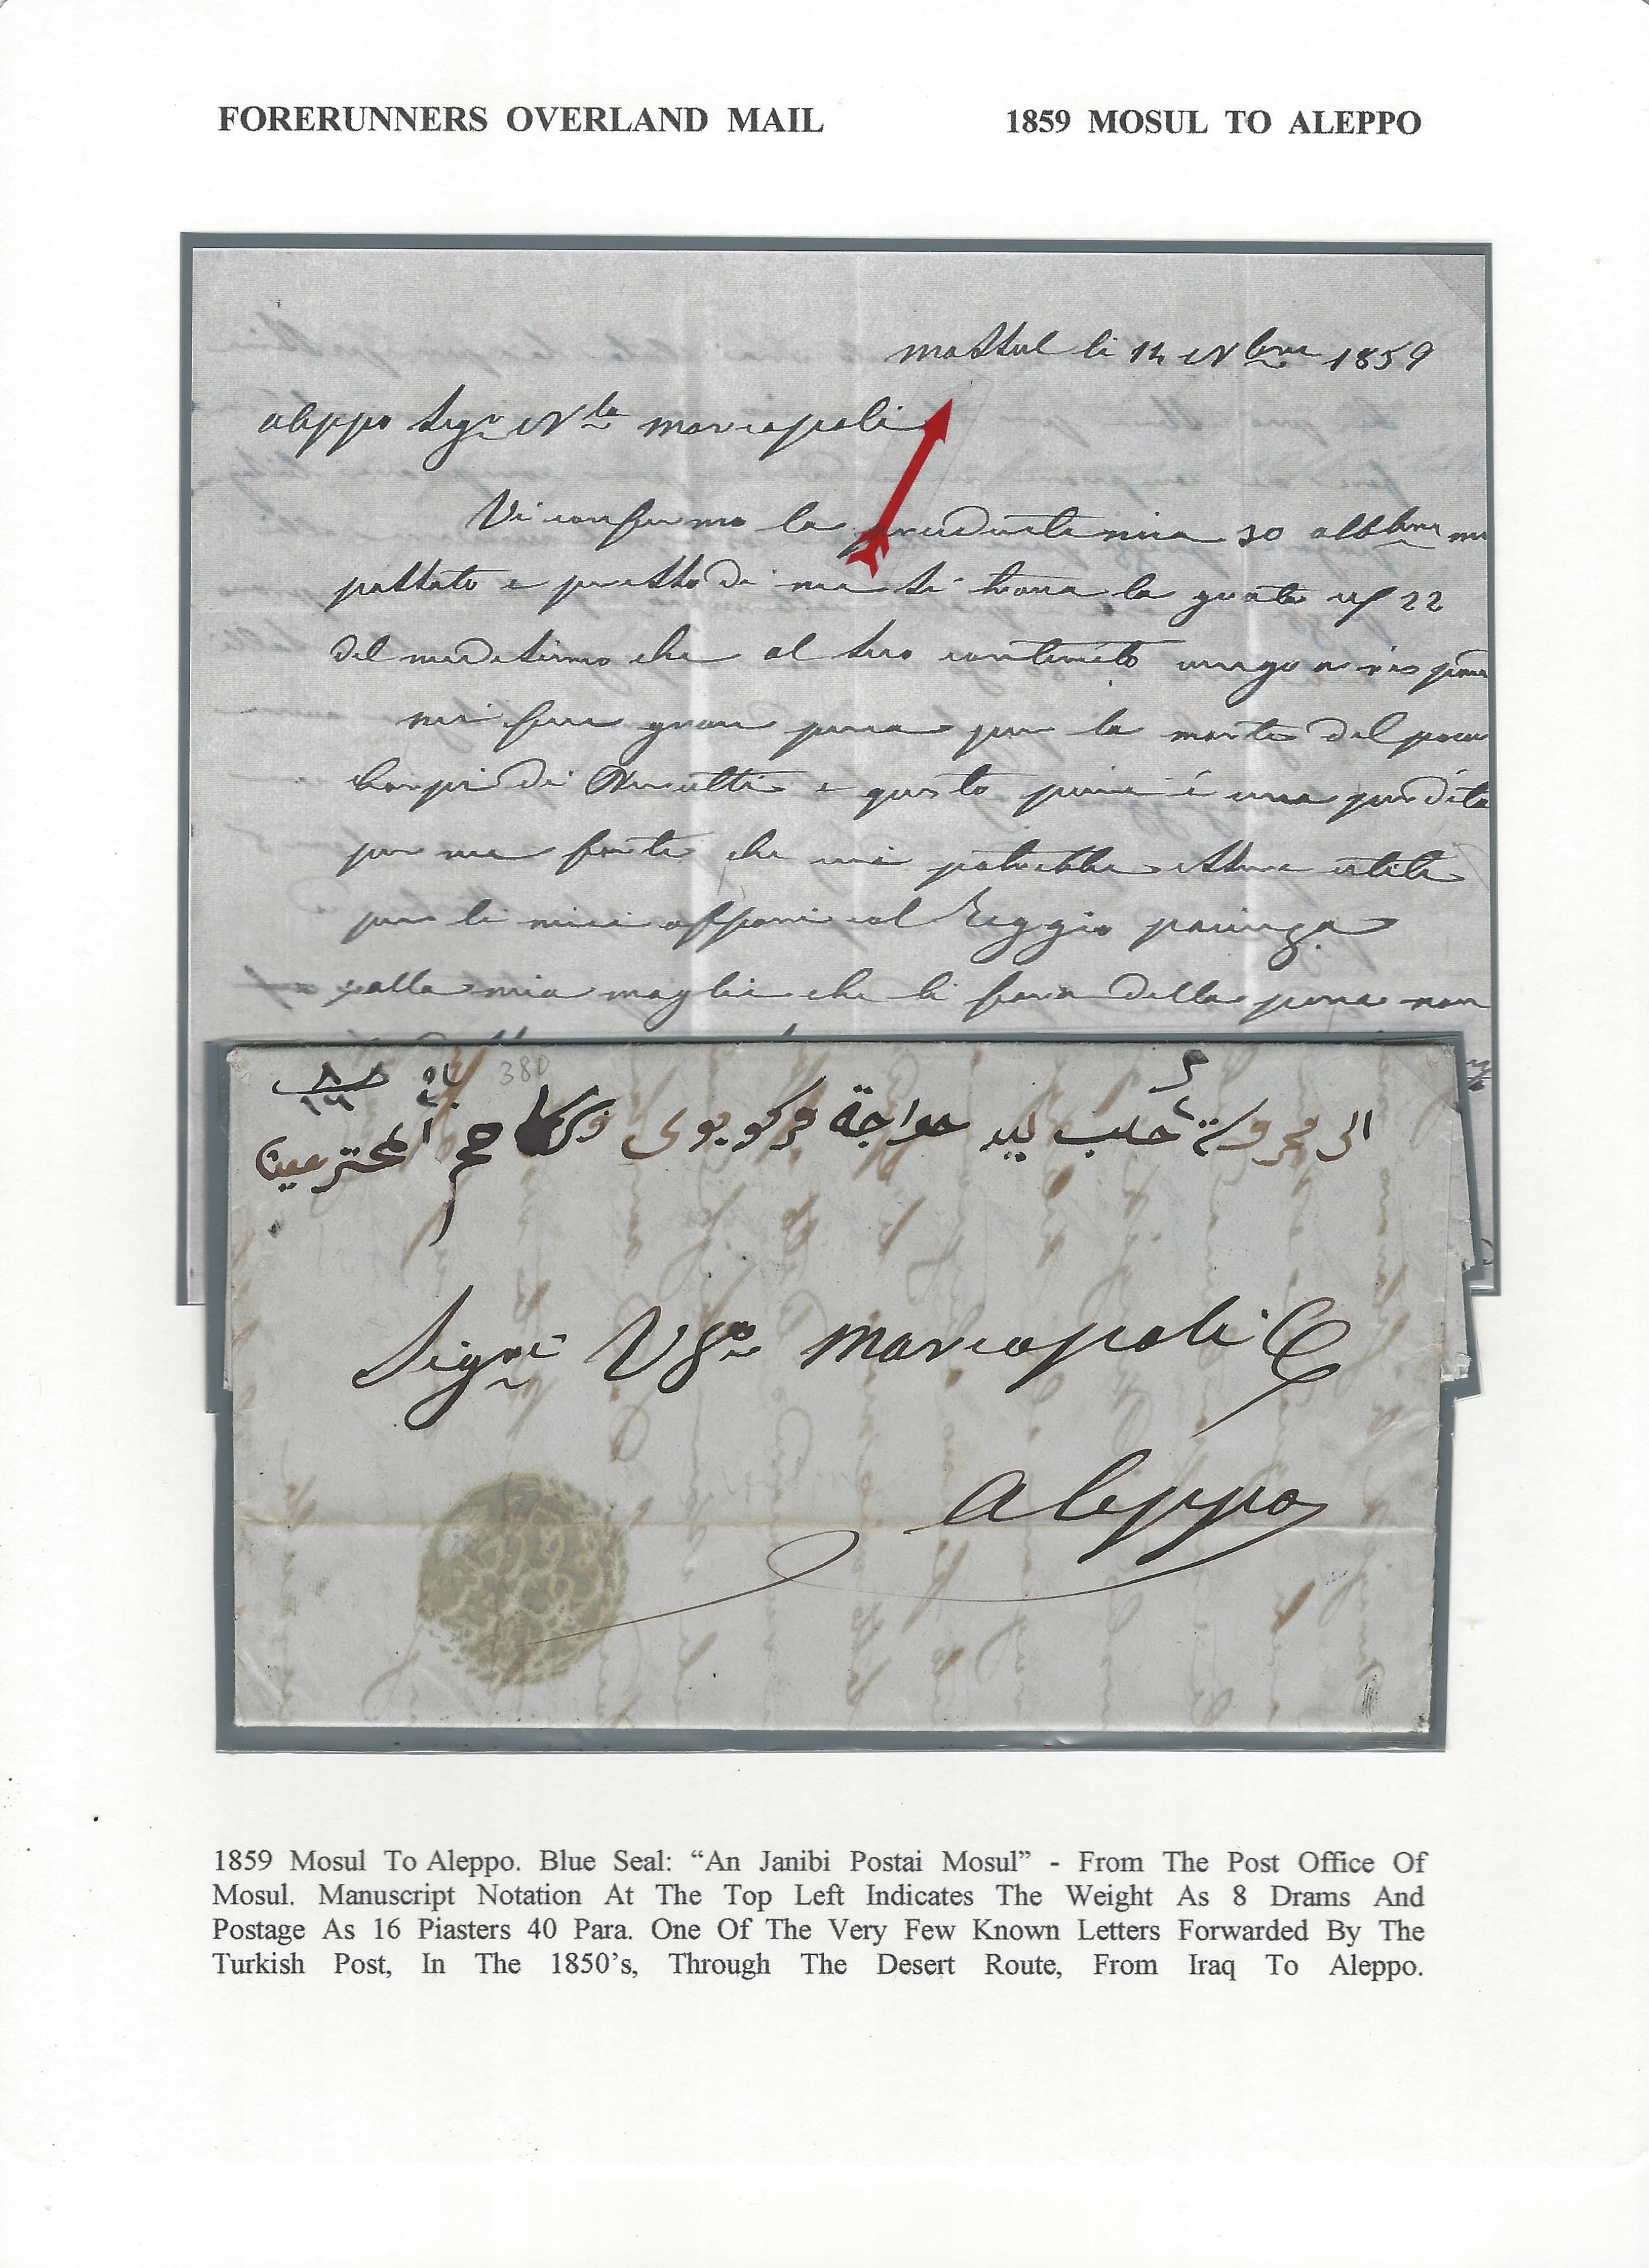 FORERUNNERS OVERLAND MAIL
1859 MOSUL TO ALEPPO
Mossul li 14 Nbre 1859
Aleppo Sigr Nla Marcopoli
Vi confermo la precedente mia 30 8bbre
passato e presso di me si trova la grata
del medesimo che al suo contenuto vengo a
mi fece gran pena per la morte del
di e questo pure é una perdita
per me forte che mi potrebbe essere utile
per li miei affari al Seggio pacienza
alla mia moglie che li fara della pena non
380
الى محروسة حلب ليد خواجة مركوبولى المحترمين
Sigri Marcopoli C
Aleppo
1859 Mosul To Aleppo. Blue Seal: “An Janibi Postai Mosul” - From The Post Office Of
Mosul. Manuscript Notation At The Top Left Indicates The Weight As 8 Drams And
Postage As 16 Piasters 40 Para. One Of The Very Few Known Letters Forwarded By The
Turkish Post, In The 1850’s, Through The Desert Route, From Iraq To Aleppo.